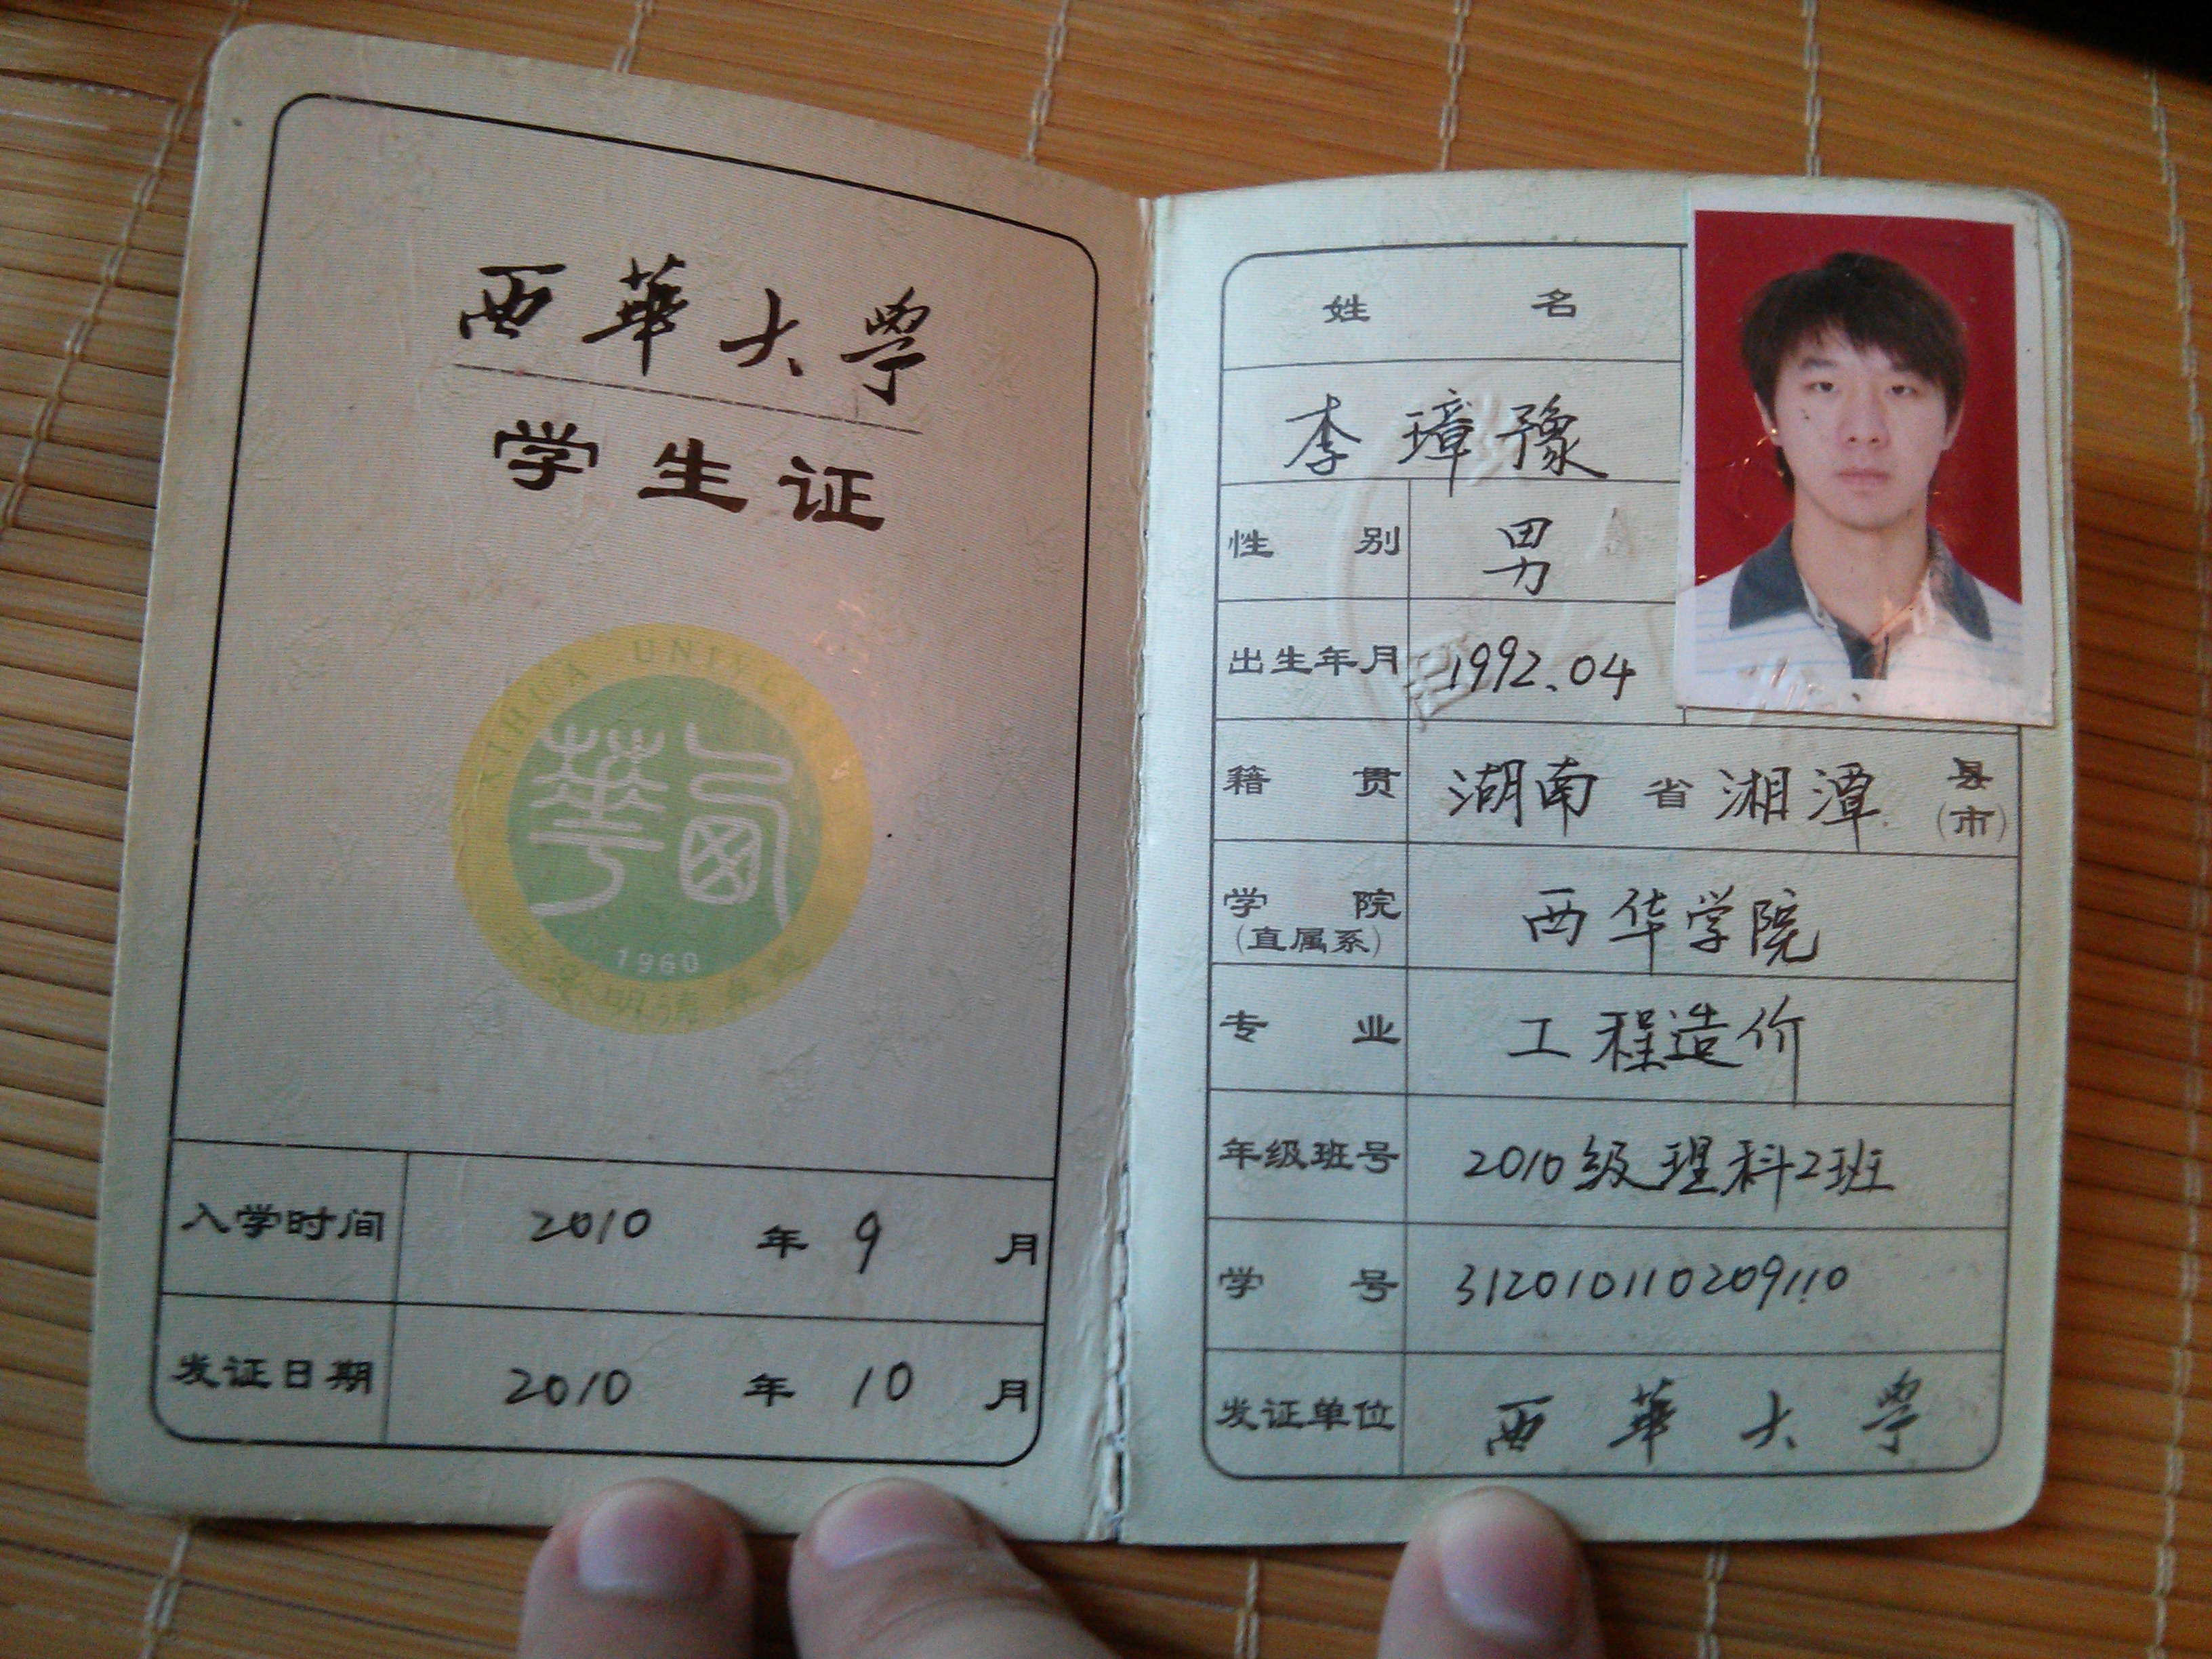 西華大學
学生证
XIHUA UNIVERSITY
1960
入学时间 2010 年 9 月
发证日期 2010 年 10 月
姓名
李璋豫
性别 男
出生年月 1992.04
籍贯 湖南 省 湘潭 县
(市)
学院 西华学院
(直属系)
专业 工程造价
年级班号 2010级理科2班
学号 312010110209110
发证单位 西華大學